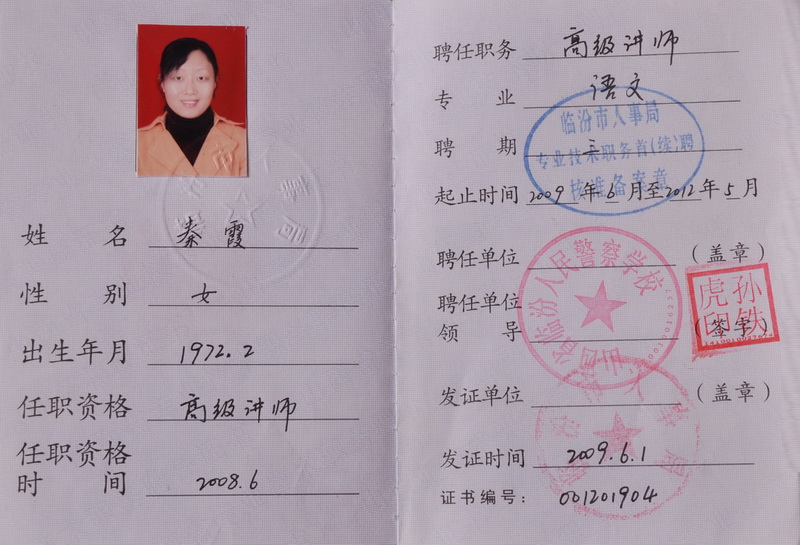 姓名 秦霞
性别 女
出生年月 1972.2
任职资格 高级讲师
任职资格
时间 2008.6
聘任职务 高级讲师
专业 语文
临汾市人事局
聘期 三
专业技术职务首(续)聘
核准备案章
起止时间 2009年6月至2012年5月
聘任单位 (盖章)
省临汾人民警察学校
聘任单位
领导 (签字)
孙铁虎印
发证单位 (盖章)
发证时间 2009.6.1
证书编号: 001201904